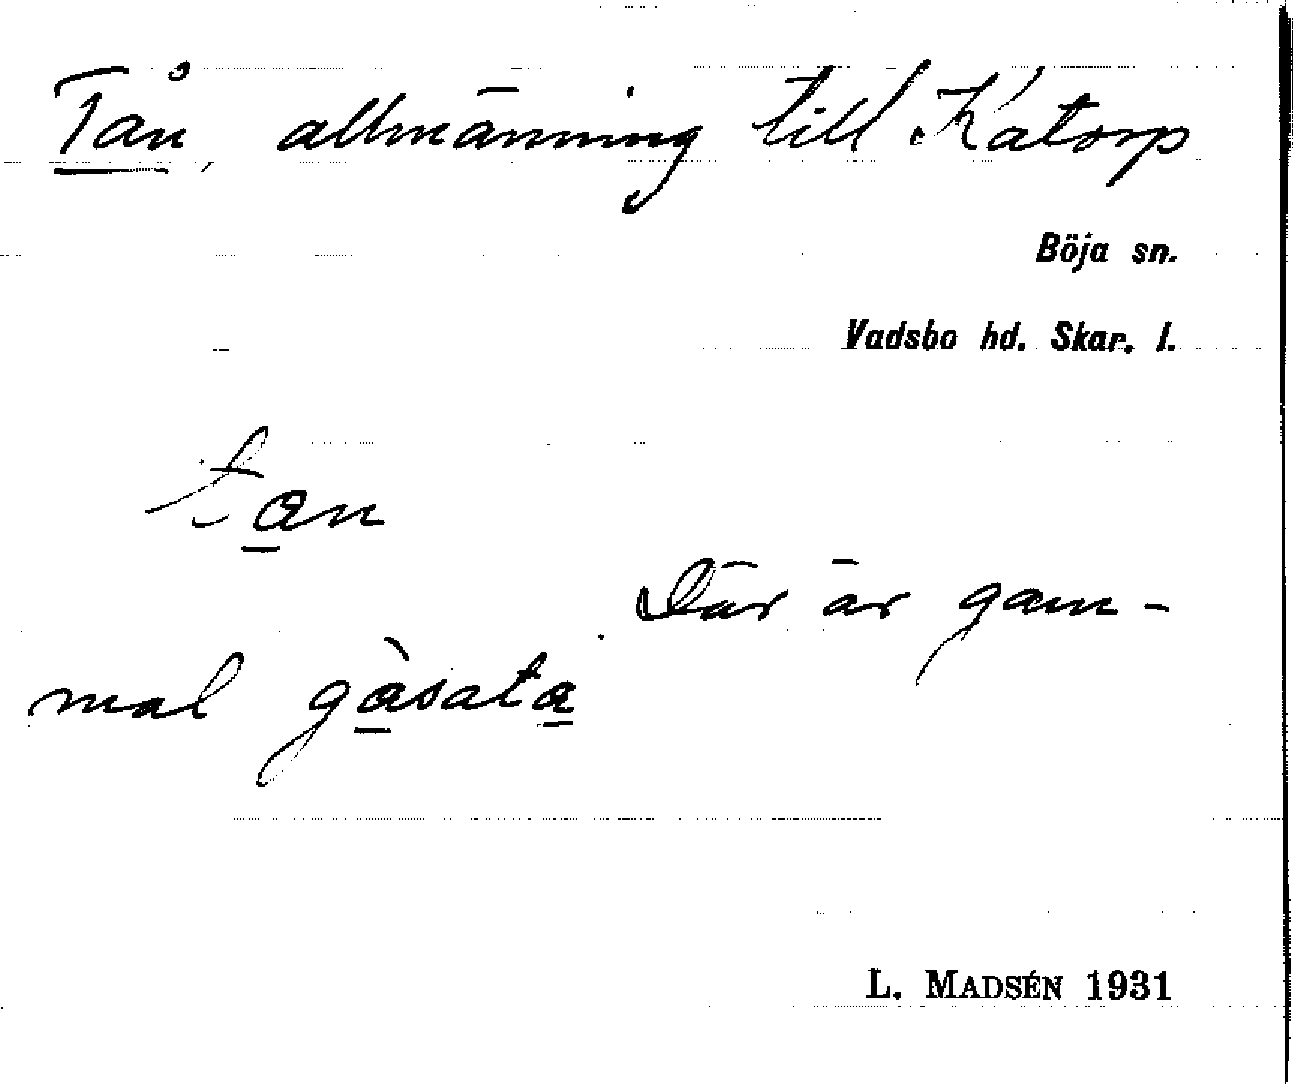 Tån, allmänning till Katorp
Böja sn.
Vadsbo hd. Skar. l.
tan
Där är gam-
mal gàsata
L. MADSÉN 1931